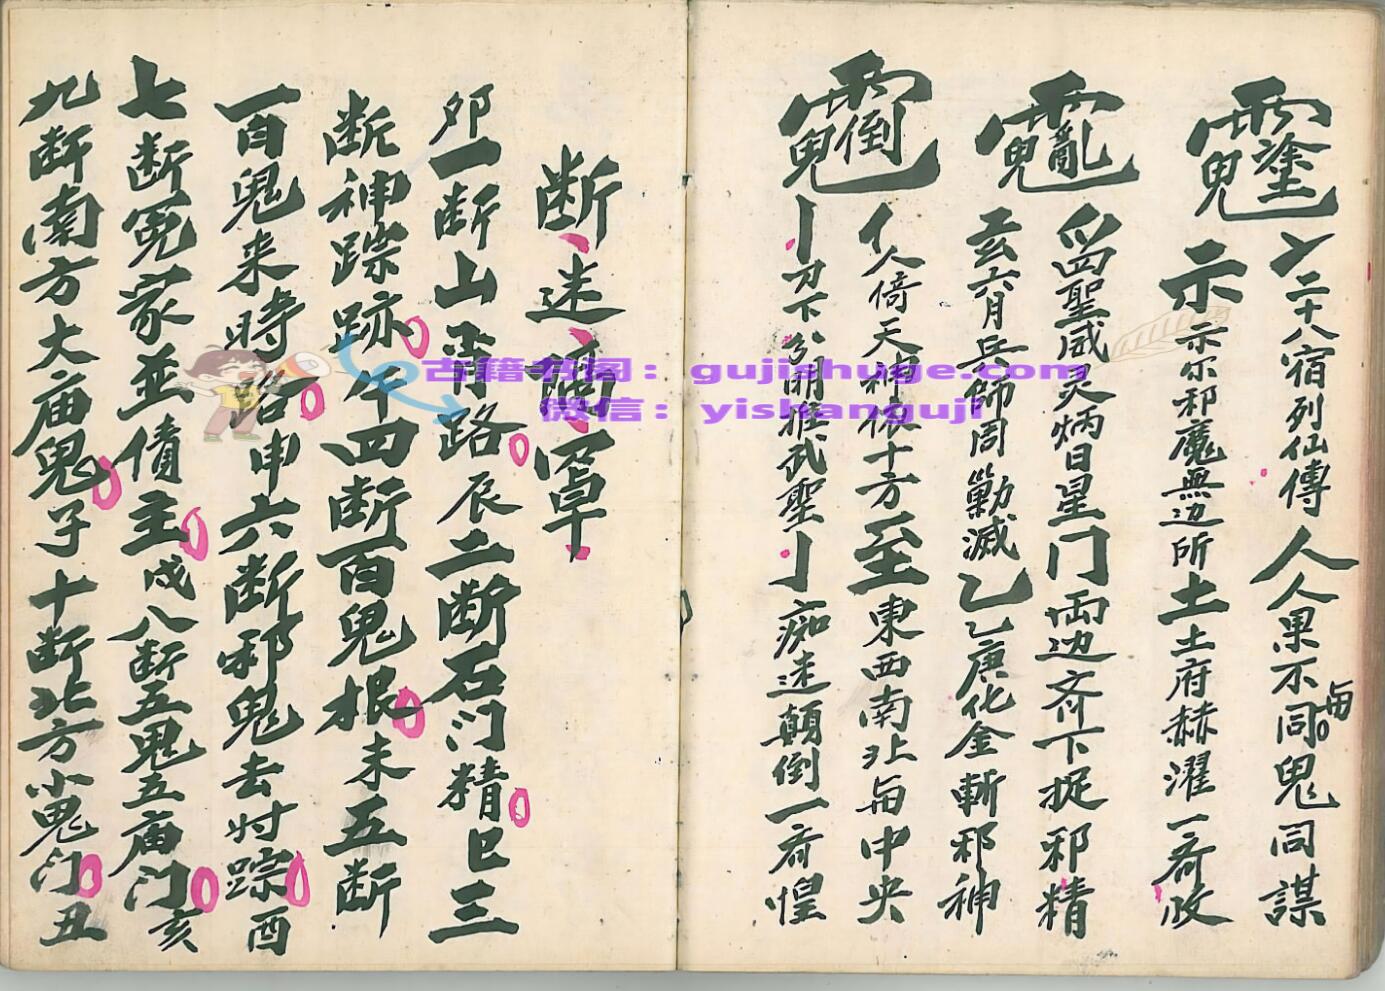 二十八宿列仙傳人人果不同鬼同謀
与
示示尔邪魔無边所土土府赫濯一齐收
聖威灵炳日星门両边齐下捉邪精
亥六月兵師周勦滅乙乙庚化金斬邪神
人倚天神依十方至東西南北与中央
刀下分明推武聖亅痴迷顛倒一齐惶
断迷滴罩
夘一断山背路辰二断石门精巳三
断神踪跡午四断百鬼根未五断
百鬼来時路申六断邪鬼去时踪酉
七断冤家並債主戌八断五鬼五庙门亥
九断南方大庙鬼子十断北方小鬼门丑
古籍书阁：gujishuge.com
微信：yishanguji